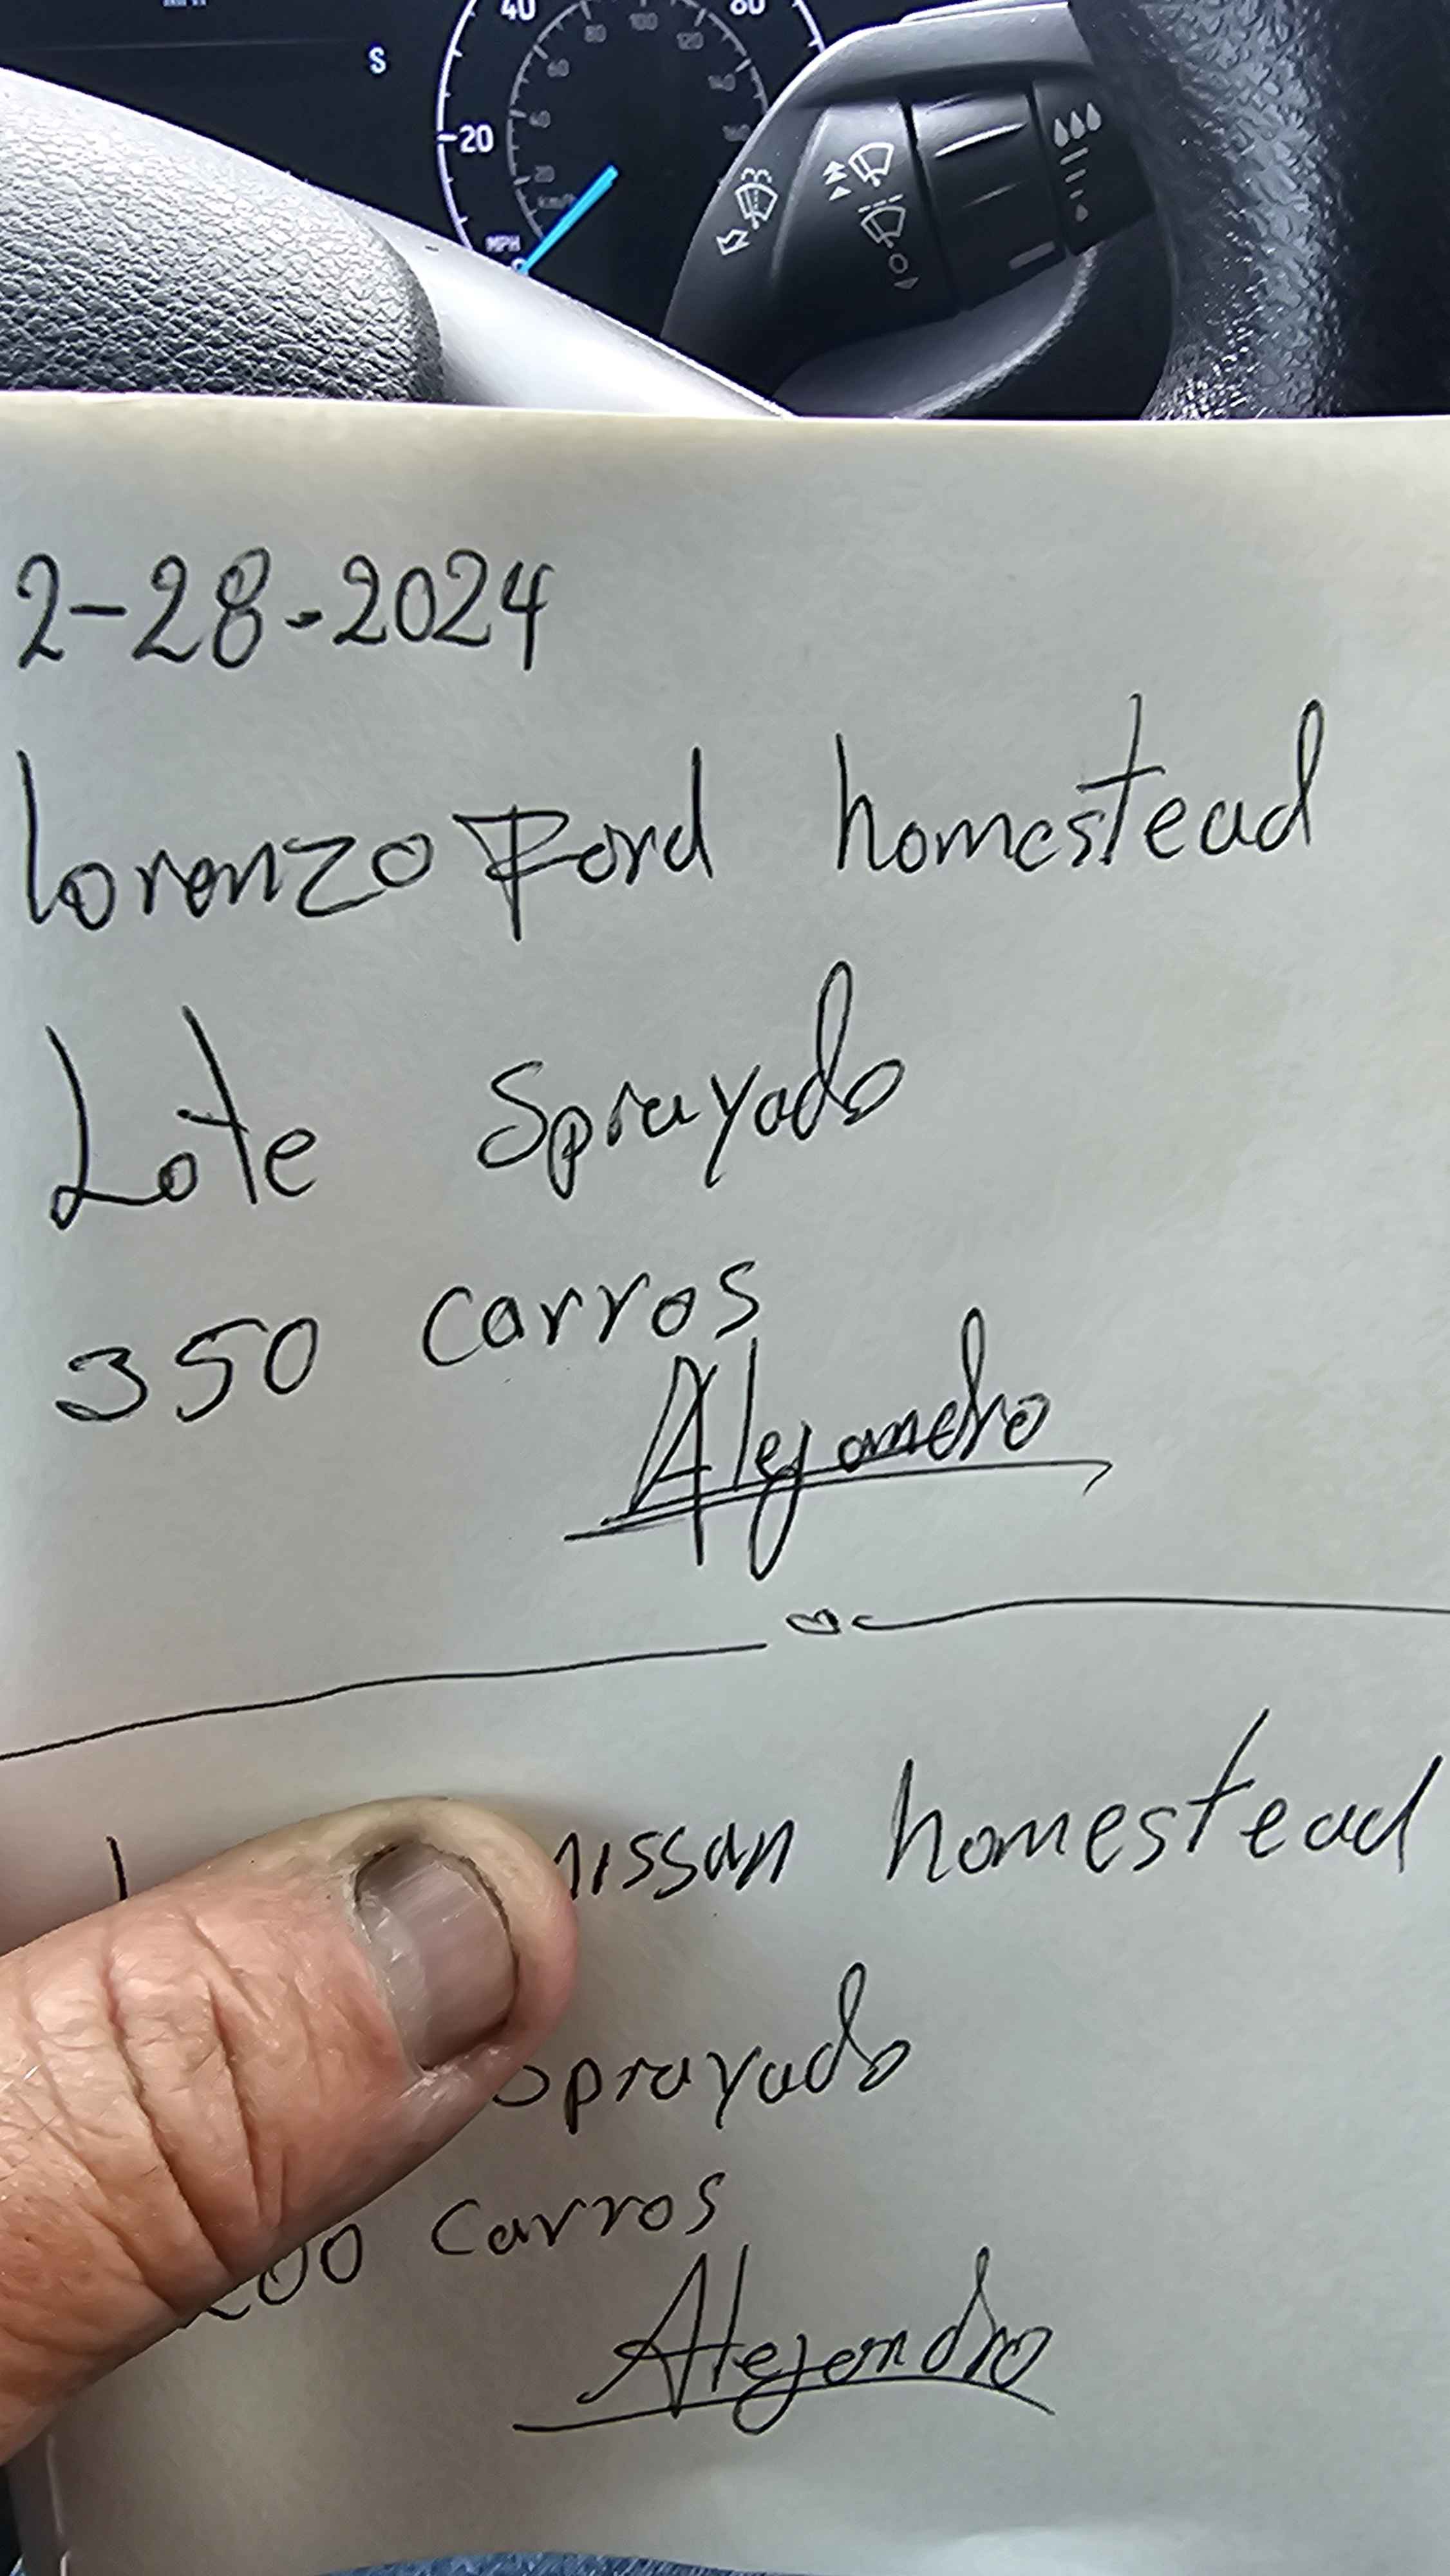 S
40
80
20
MPH
60
40
20
km/h
80
100
120
140
160
2-28-2024
Lorenzo Ford homestead
Lote Sprayado
350 carros
Alejandro
nissan homestead
Sprayado
carros
Alejandro